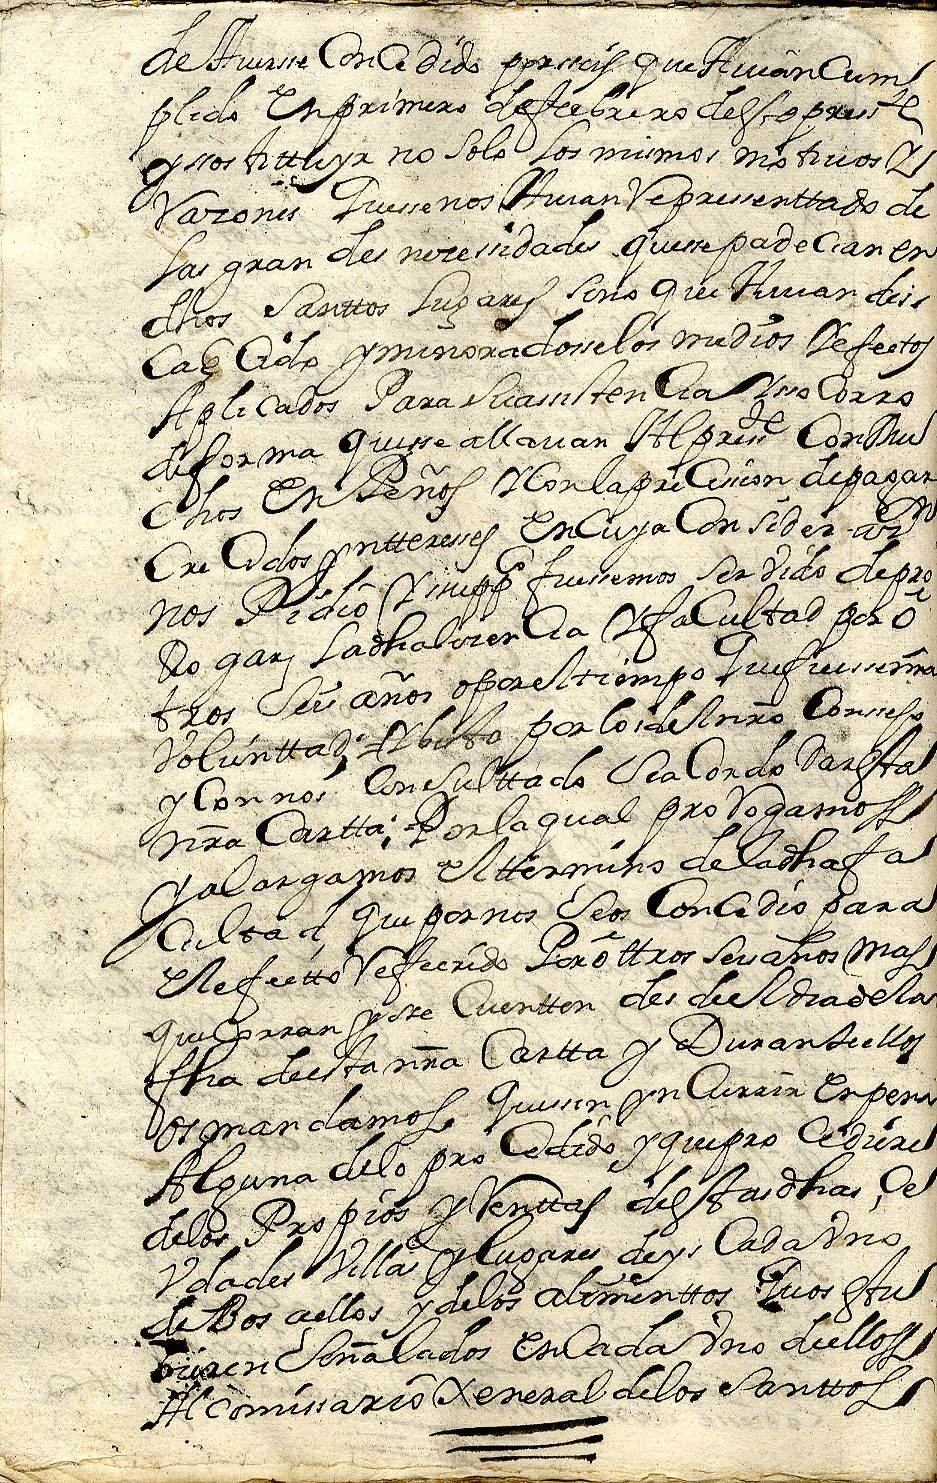 de Auerse Concedido por seis que Auian Cum
plido En primero de febrero deste press.te
y sostittuyr no solo los mismos motiuos Y
Razones Que se nos Auian Representtado de
las grandes nezessidades que se padecian en
dhos Santtos Lugares sino que Auian des
Caecido y minoradose los medios Y efectos
Aplicados Para su asistencia Y socorro
de forma que se allauan Al press.te Con Mu
chos Enpeños Y Con la precission de pagar
Crecidos ynttereses En Cuya Consideraz.on
nos Pidio Y supp.co fuessemos servido de pro
Rogar la dha licencia Y facultad por o
tros seis años o por el tiempo Que fuesse nra
Voluntad; Y bisto por los del nro Conssejo
y Con nos Consulttado se a Cordo dar esta
nra Cartta; Por la qual pro Rogamos
y alargamos El ttermino de la dha fa
Cultad que por nos se os Concedio para
El efectto Refferido Por ottros seis años mas
que Corran y se Cuentten desde el dia de la
fha de esta nra Cartta y Durante ellos
os mandamos que sin yncurrir En pena
Alguna de lo procedido y que procediere
de los Propios y Renttas destas dhas Ce
Vdades Villas y lugares de ys Cada Vno
de Bos aellos y de los alimenttos Que estu
bieren Señalados En Cada Vno de ellos
Al Comissario Xeneral de los Santtos